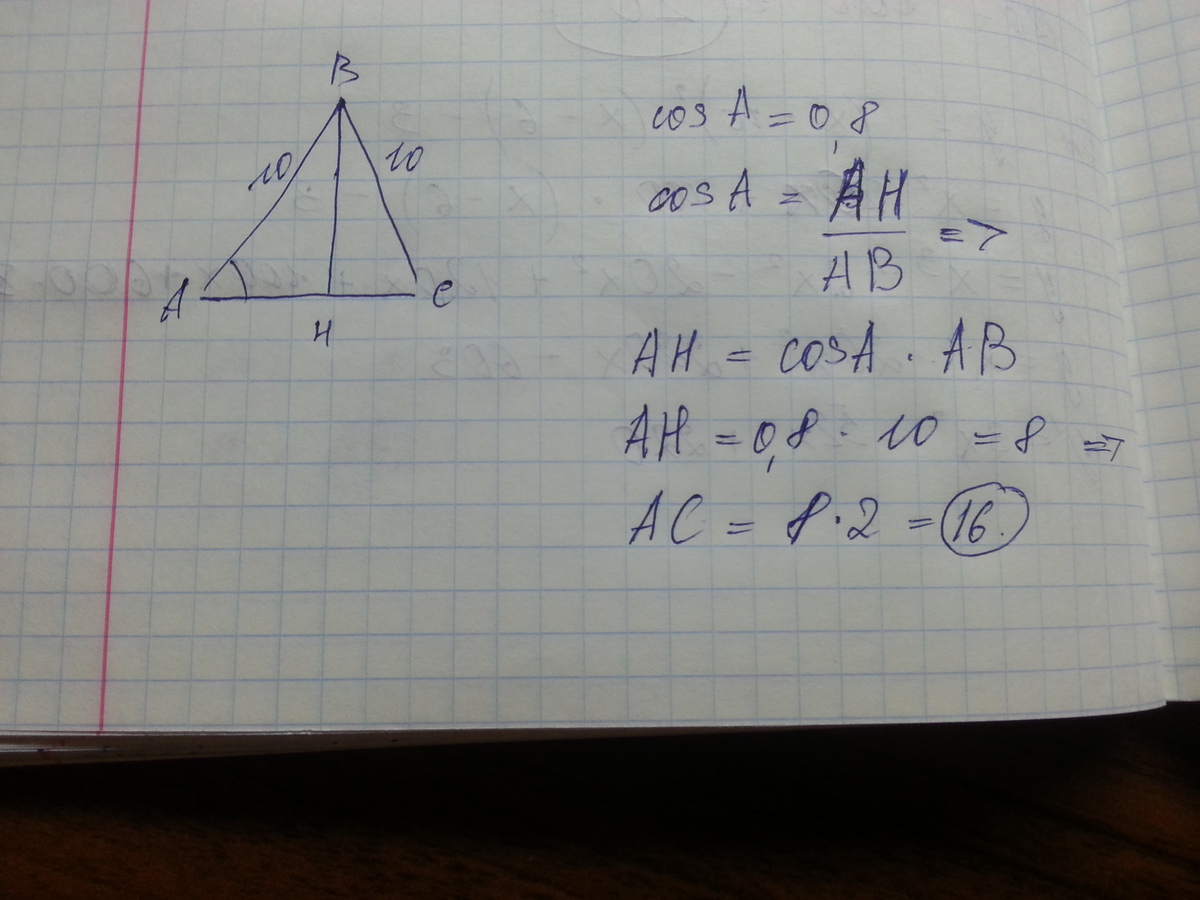 B
10
10
A
C
H
cos A = 0,8
cos A = AH / AB =>
AH = cosA · AB
AH = 0,8 · 10 = 8 =>
AC = 8 · 2 = 16.